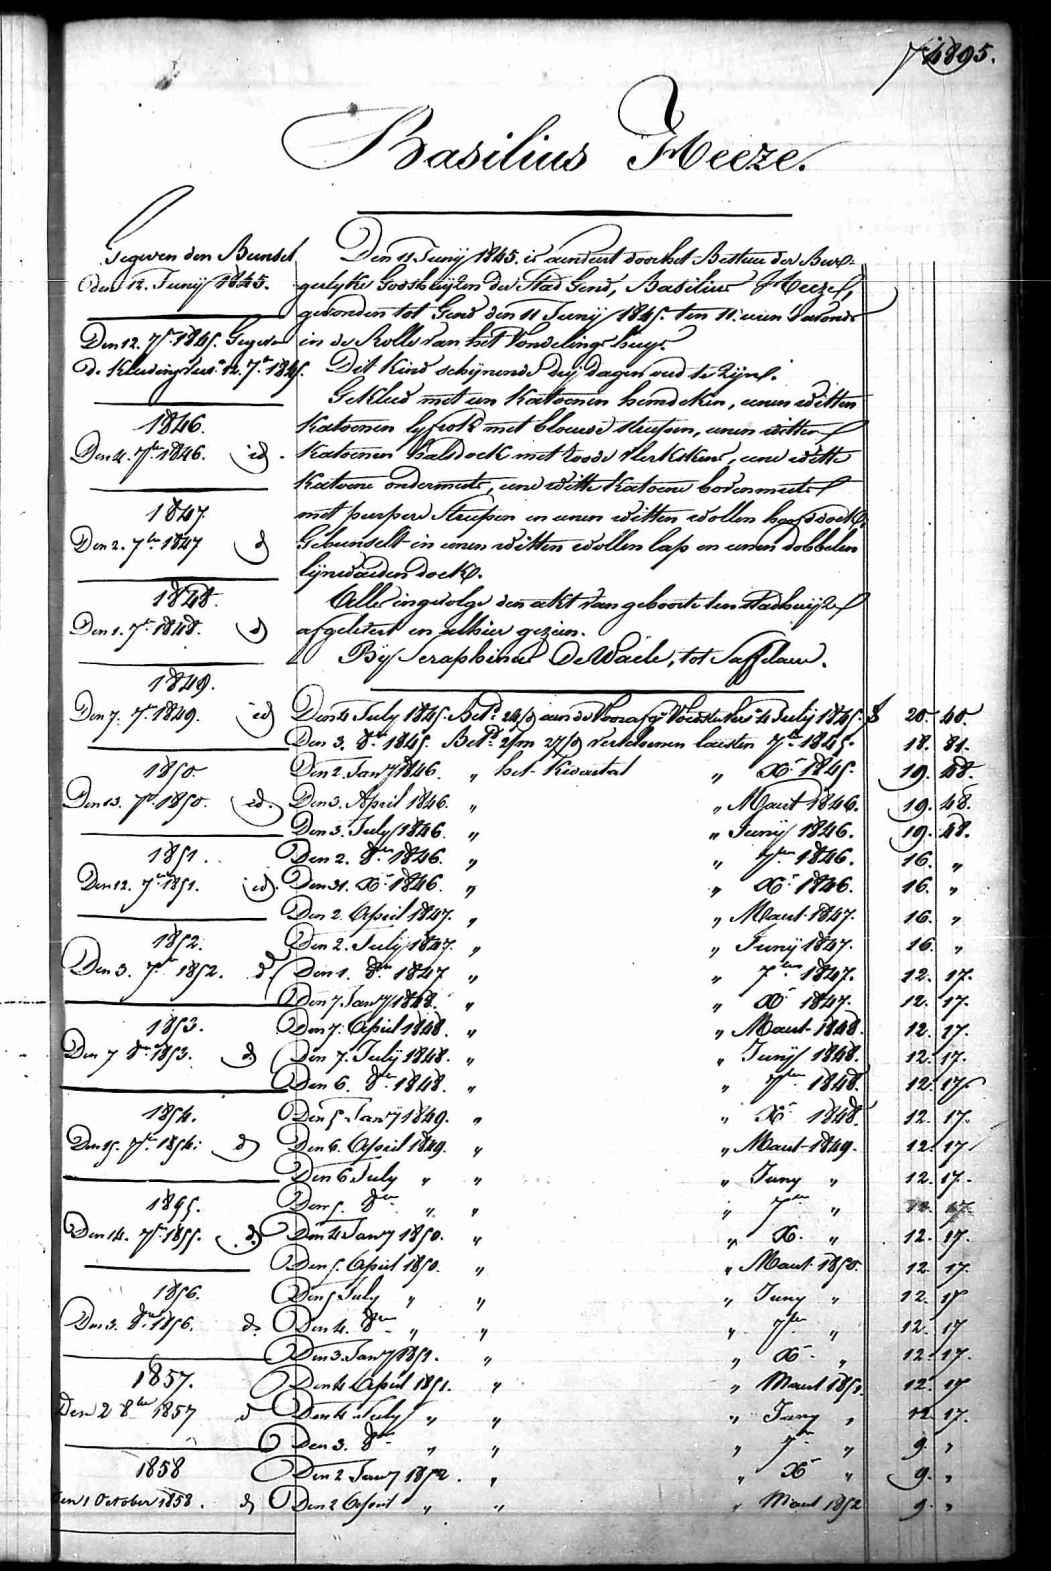 4895.
Basilius Heeze.
Gegeven den Bunsel
den 12. Junij 1845.
Den 12. 7r 1845. Gegeven
de Kleeding 12. 7r 1845.
1846.
Den 4. 7r 1846. id.
1847.
Den 2. 7r 1847 d
1848.
Den 1. 7r 1848. d
1849.
Den 7. 7r 1849. id
1850
Den 13. 7r 1850. id.
1851.
Den 12. 7r 1851. id.
1852.
Den 3. 7r 1852. d
1853.
Den 7 8r 1853. d
1854.
Den 15. 7r 1854. d
1855.
Den 14. 7r 1855. d
1856.
Den 3. 8r 1856. d.
1857.
Den 2 8ber 1857 d
1858
Den 1 October 1858. d
Den 11 Junij 1845. is aenveert door het Bestuer der Bur-
gerlyke Godshuyzen der Stad Gend, Basilius Heeze,
gevonden tot Gend den 11 Junij 1845. ten 11 uren 's avonds
in de Rolle van het Vondelingshuys.
Dit Kind schijnende dry dagen oud te zijn.
Gekleed met een Katoenen hemdeken, eenen witten
Katoenen lyfrok met blouwe streepen, eenen witten
Katoenen halsdoek met roode vlerkskens, eene witte
Katoene ondermuts, eene witte Katoene bovenmuts
met purpere streepen en eenen witten wollen hoofddoek.
Gebunselt in eenen witten wollen lap en eenen dobbelen
lijnwaeden doek.
Alles ingevolge den akt van geboorte ten Stadhuijze
afgelevert en alhier gezien.
Bij Seraphina De Waele, tot Saffelaere.
Den 4 July 1845. Bet. 24/9 aen de Voorafg. 4 July 1845. f 20. 40.
Den 3. 8r 1845. Bet. 27/9 verschenen laetsten 7r 1845. 18. 81.
Den 2. Janry 1846. „ het Kwartael „ Xr 1845. 19. 48.
Den 3. April 1846. „ „ Maert 1846. 19. 48.
Den 3. July 1846. „ „ Junij 1846. 19. 48.
Den 2. 8er 1846. „ „ 7ber 1846. 16. „
Den 31. Xr 1846. „ „ Xr 1846. 16. „
Den 2. April 1847. „ „ Maert 1847. 16. „
Den 2. July 1847. „ „ Junij 1847. 16. „
Den 1. 8er 1847 „ „ 7ber 1847. 12. 17.
Den 7. Janry 1848. „ „ Xr 1847. 12. 17.
Den 7. April 1848. „ „ Maert 1848. 12. 17.
Den 7. July 1848. „ „ Junij 1848. 12. 17.
Den 6. 8er 1848. „ „ 7ber 1848. 12. 17.
Den 5 Janry 1849. „ „ Xr 1848. 12. 17.
Den 6. April 1849. „ „ Maert 1849. 12. 17
Den 6 July „ „ „ Juny „ 12. 17.
Den 5. 8er „ „ „ 7er „ 12. 17.
Den 4 Janry 1850. „ „ X. „ 12. 17.
Den 5. April 1850. „ „ Maert 1850. 12. 17.
Den 5 July „ „ „ Juny „ 12. 17
Den 4. 8er „ „ „ 7ber „ 12. 17
Den 3. Janry 1851. „ „ Xr „ 12. 17.
Den 4 April 1851. „ „ Maert 1851. 12. 17
Den 4 July „ „ „ Juny „ 12. 17.
Den 3. 8er „ „ „ 7r „ 9. „
Den 2 Janry 1852. „ „ Xr „ 9. „
Den 2 April „ „ „ Maert 1852 9. „